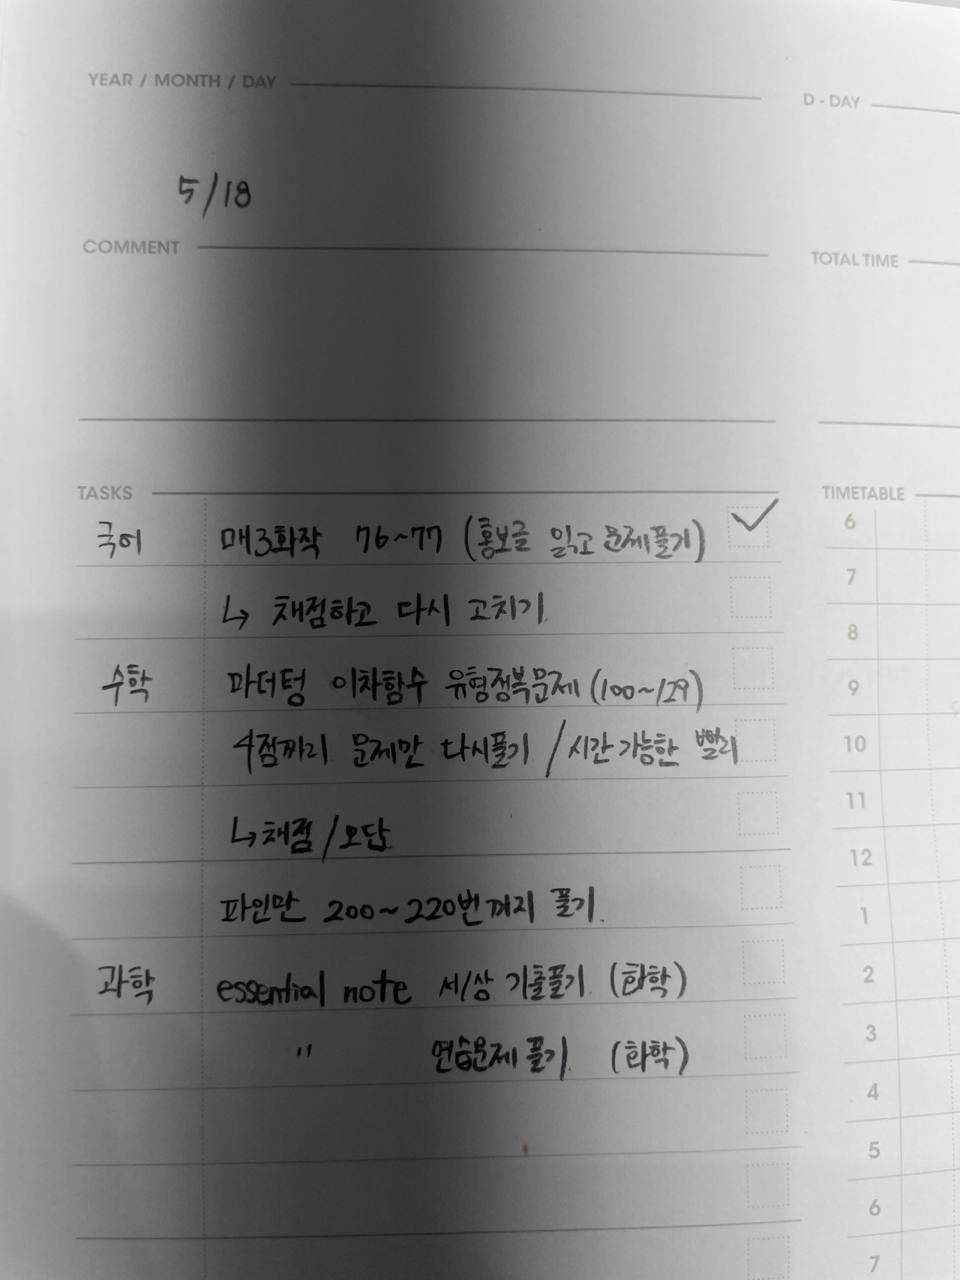 YEAR / MONTH / DAY
D - DAY
5/18
COMMENT
TOTAL TIME
TASKS
TIMETABLE
국어 매3화작 76~77 (홍보글 읽고 문제풀기)
↳ 채점하고 다시 고치기.
수학 마더텅 이차함수 유형정복문제 (100~129)
4점까리 문제만 다시풀기 / 시간 가능한 빨리
↳ 채점 / 오답
파인만 200~220번까지 풀기.
과학 essential note 서/상 기출풀기. (화학)
" 연습문제 풀기. (화학)
6
7
8
9
10
11
12
1
2
3
4
5
6
7